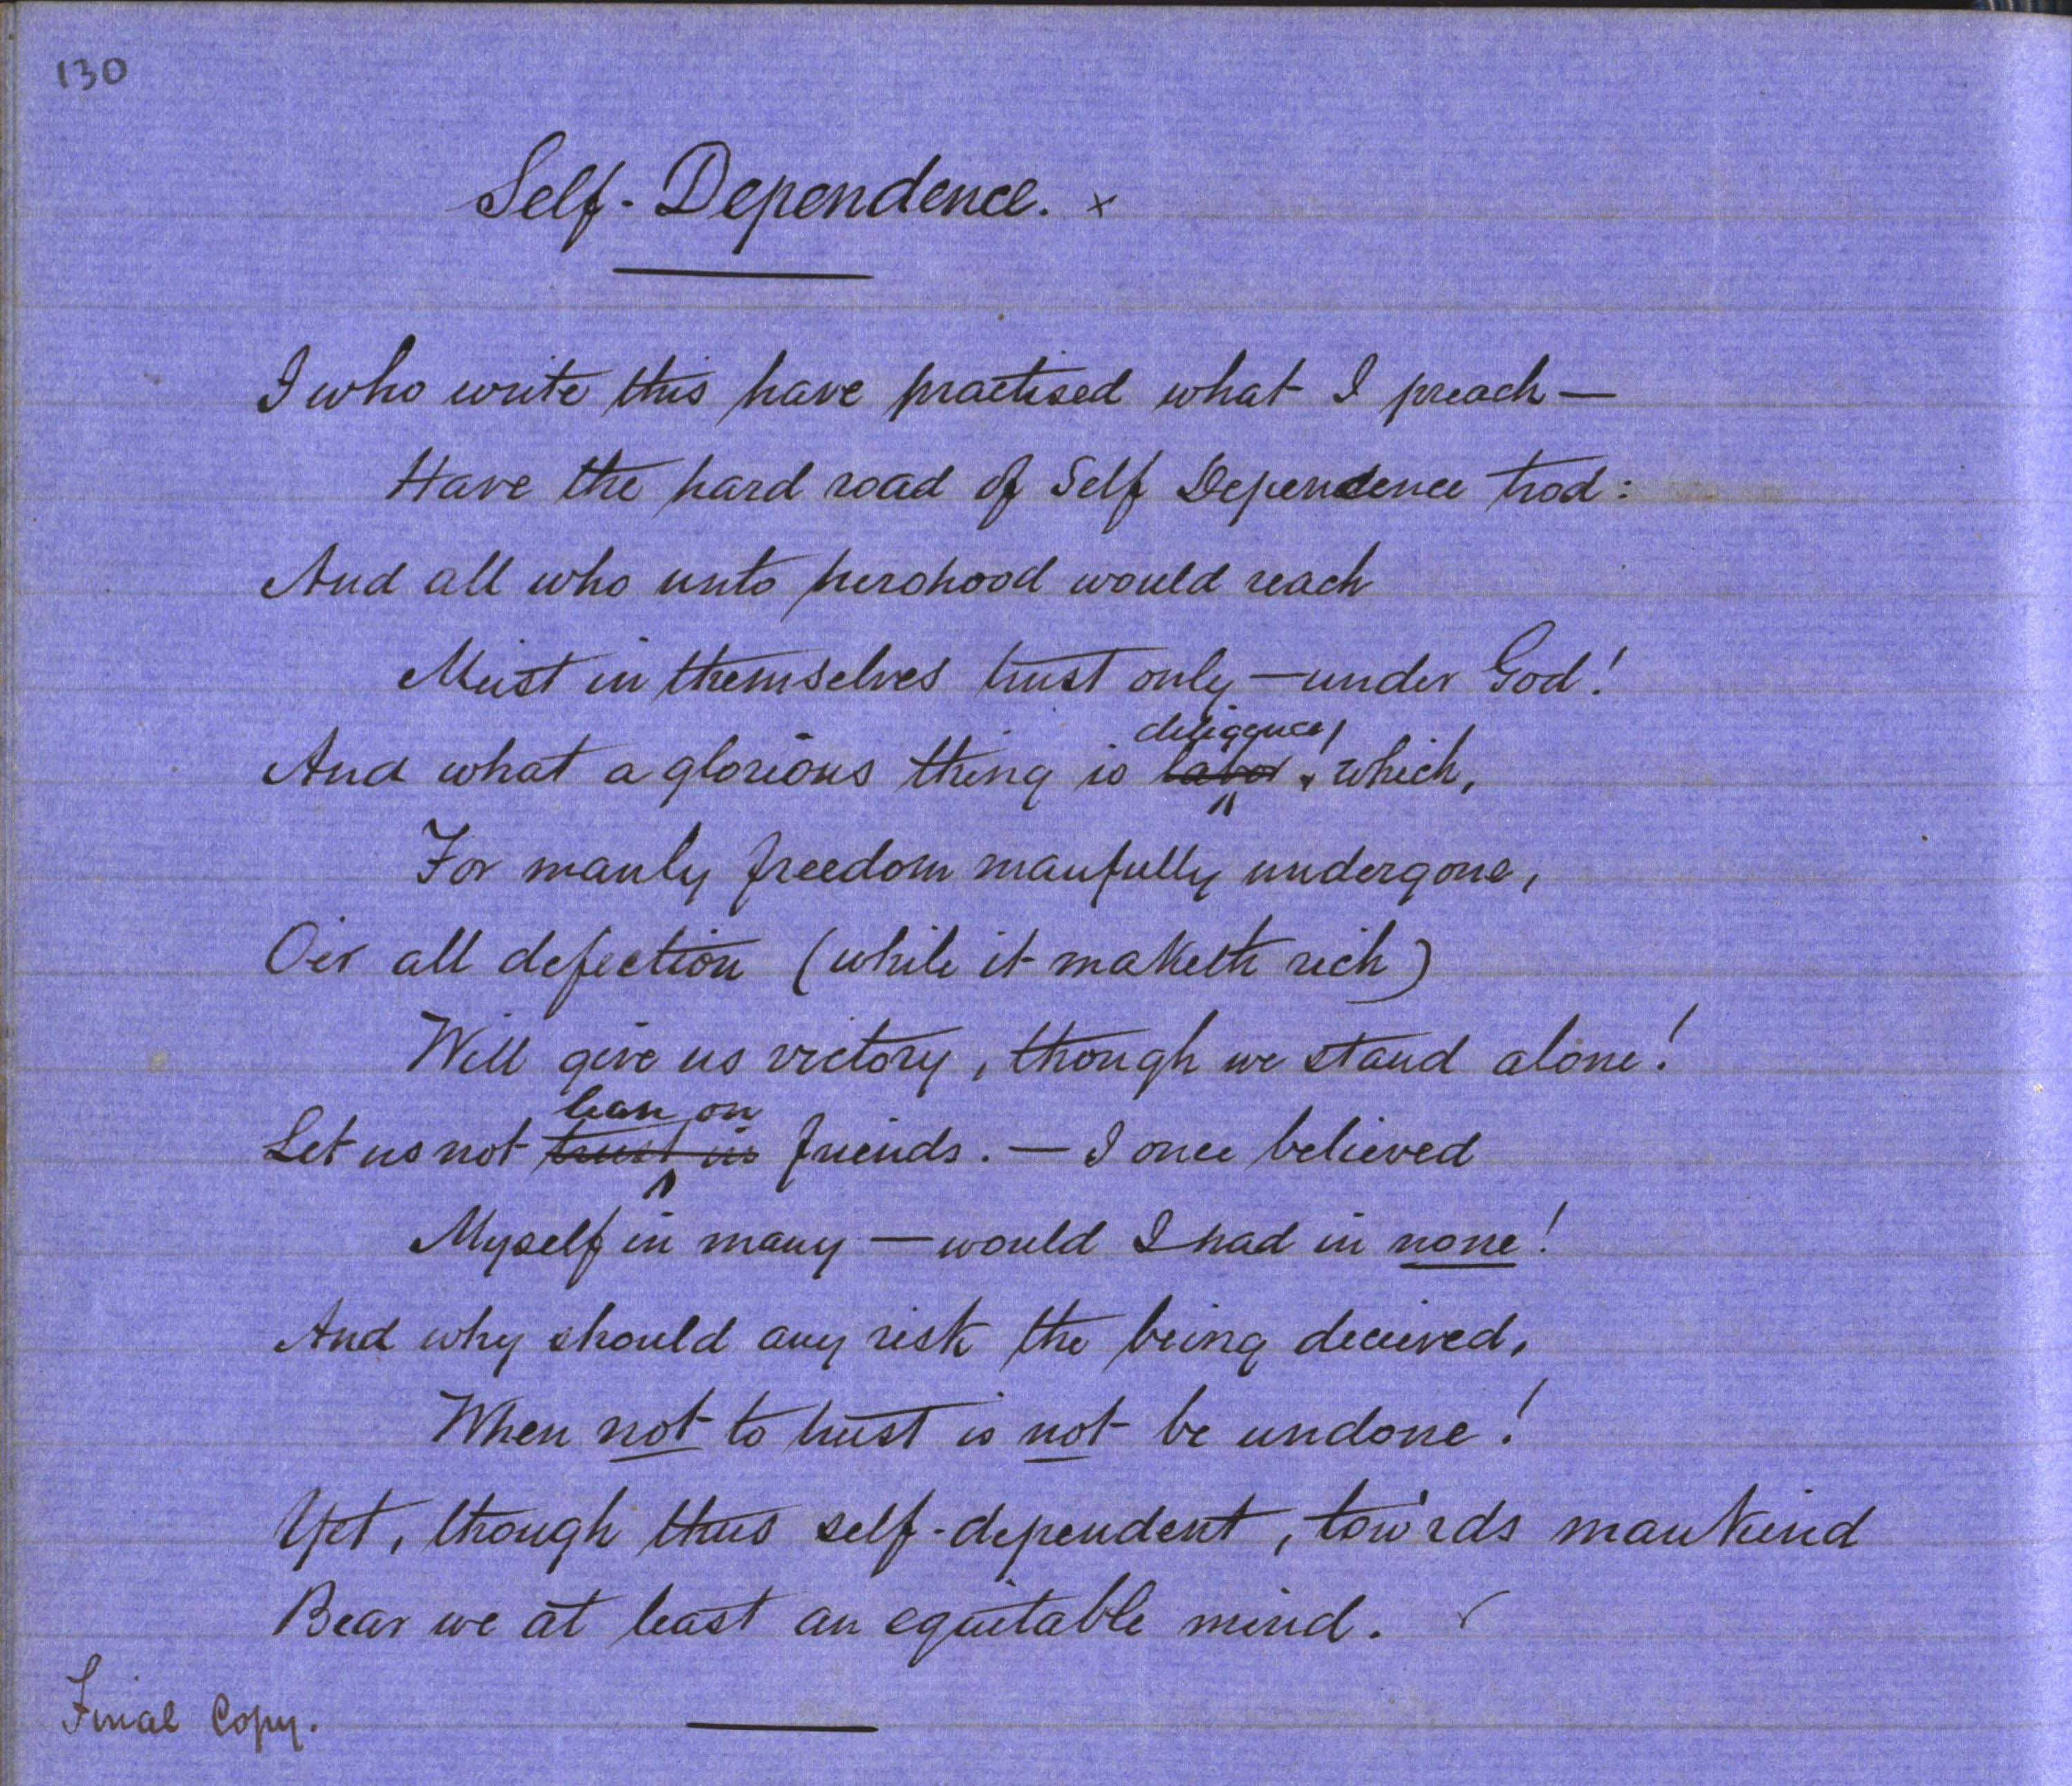 130
Self-Dependence. ×
I who write this have practised what I preach —
Have the hard road of Self Dependence trod:
And all who unto herohood would reach
Must in themselves trust only — under God!
diligence,
And what a glorious thing is labor, which,
For manly freedom manfully undergone,
O'er all defection (while it maketh rich)
Will give us victory, though we stand alone!
lean on
Let us not trust in friends. — I once believed
Myself in many — would I had in none!
And why should any risk the being deceived,
When not to trust is not be undone!
Yet, though thus self-dependent, tow'rds mankind
Bear we at least an equitable mind.
Final Copy.